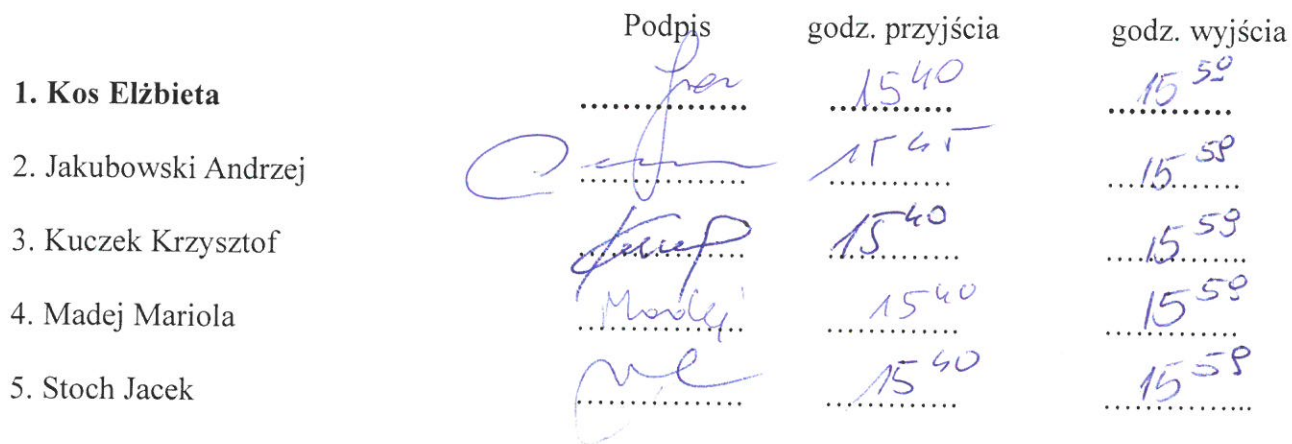 Podpis godz. przyjścia godz. wyjścia
1. Kos Elżbieta .................. 15 40 15 59
2. Jakubowski Andrzej .................. 15 45 15 59
3. Kuczek Krzysztof .................. 15 40 15 59
4. Madej Mariola Madej 15 40 15 59
5. Stoch Jacek .................. 15 40 15 59